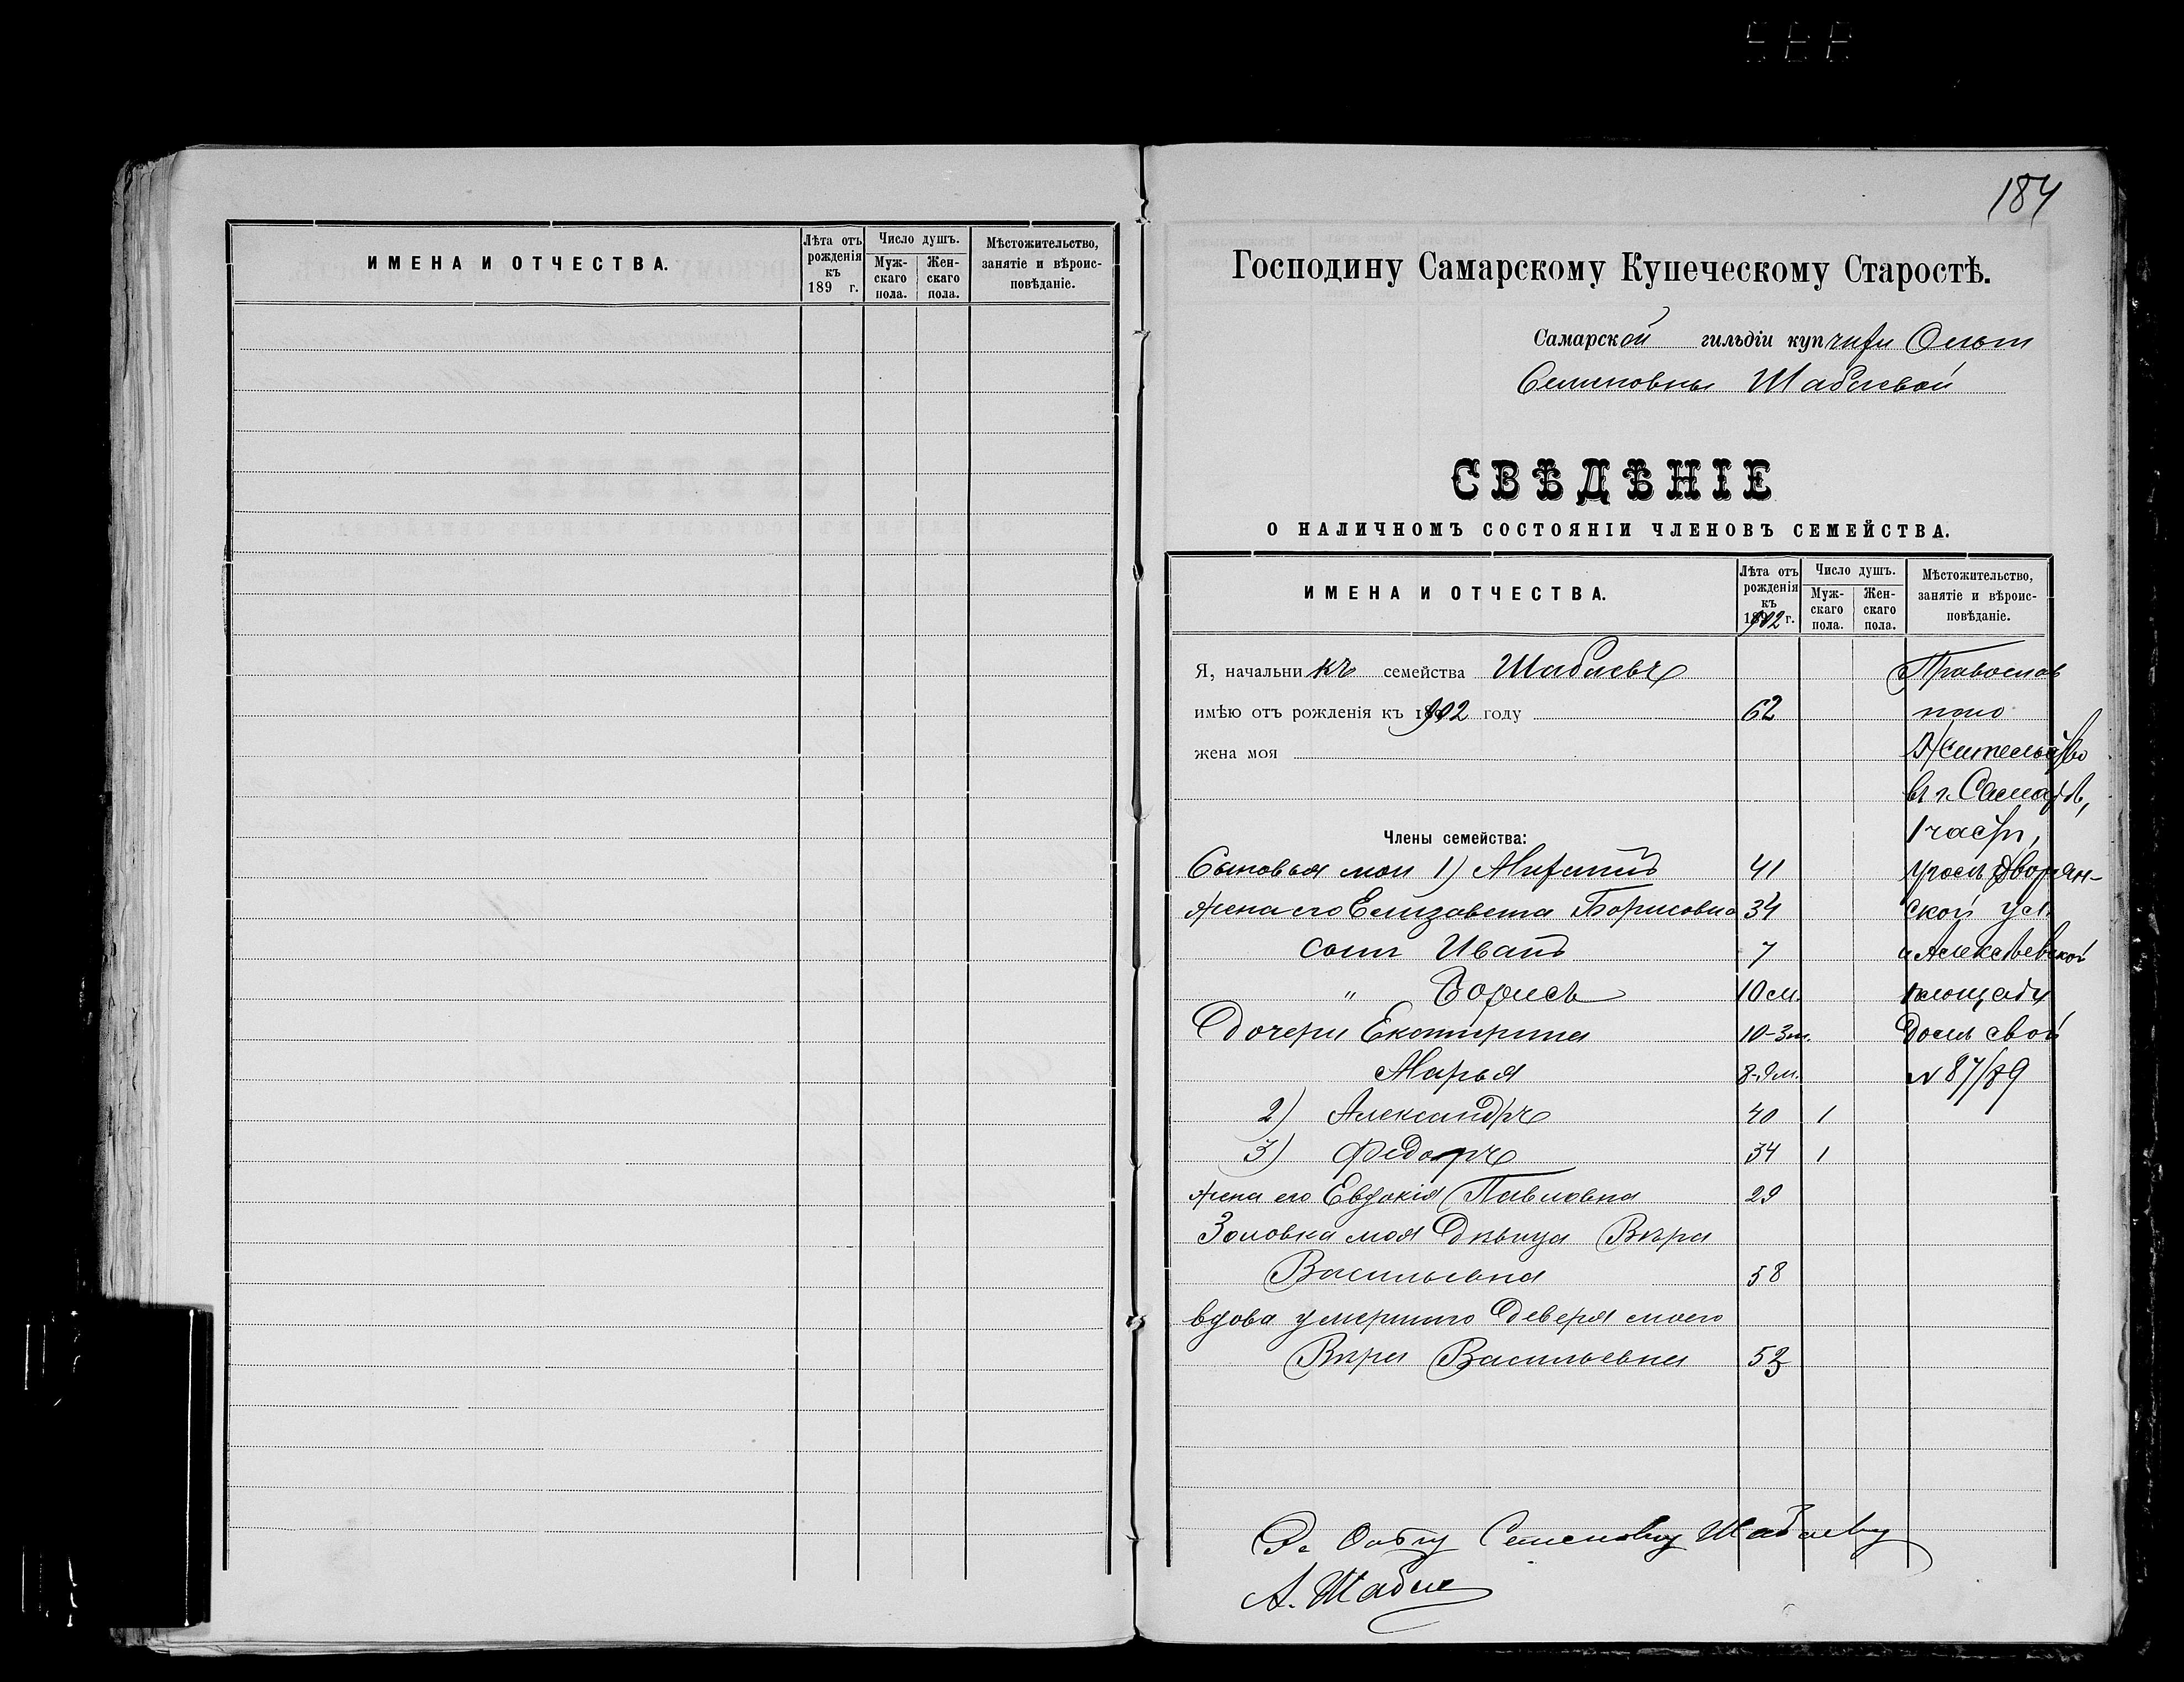 184
ИМЕНА И ОТЧЕСТВА.
Лѣта отъ рожденія къ 189 г.
Число душъ.
Мужскаго пола.
Женскаго пола.
Мѣстожительство, занятіе и вѣроисповѣданіе.
Господину Самарскому Купеческому Старостѣ.
Самарской гильдіи купчихи
Семеновны Шабаевой
СВѢДѢНІЕ
О НАЛИЧНОМЪ СОСТОЯНІИ ЧЛЕНОВЪ СЕМЕЙСТВА.
ИМЕНА И ОТЧЕСТВА.
Лѣта отъ рожденія къ 1902 г.
Число душъ.
Мужскаго пола.
Женскаго пола.
Мѣстожительство, занятіе и вѣроисповѣданіе.
Я, начальникъ семейства Шабаевъ Православ
имѣю отъ рожденія къ 1902 году 62
жена моя Жительство
въ г. Самарѣ,
Члены семейства: 1 части,
Сыновья мои 1) 41 уголъ Дворян-
жена его Елизавета Борисовна 34 ской ул.
сынъ Иванъ 7 и Алексѣевской
" Борисъ 10 м. площади
Дочери Екатерина 10-3 м. домъ свой
Марья 8-9 м. № 87/89
2) Александръ 40 1
3) Федоръ 34 1
жена его Евдокія Павловна 29
Золовка моя дѣвица Вѣра
Васильевна 58
вдова умершаго деверя моего
Вѣра Васильевна
За Семеновну Шабаеву
А. Шабае